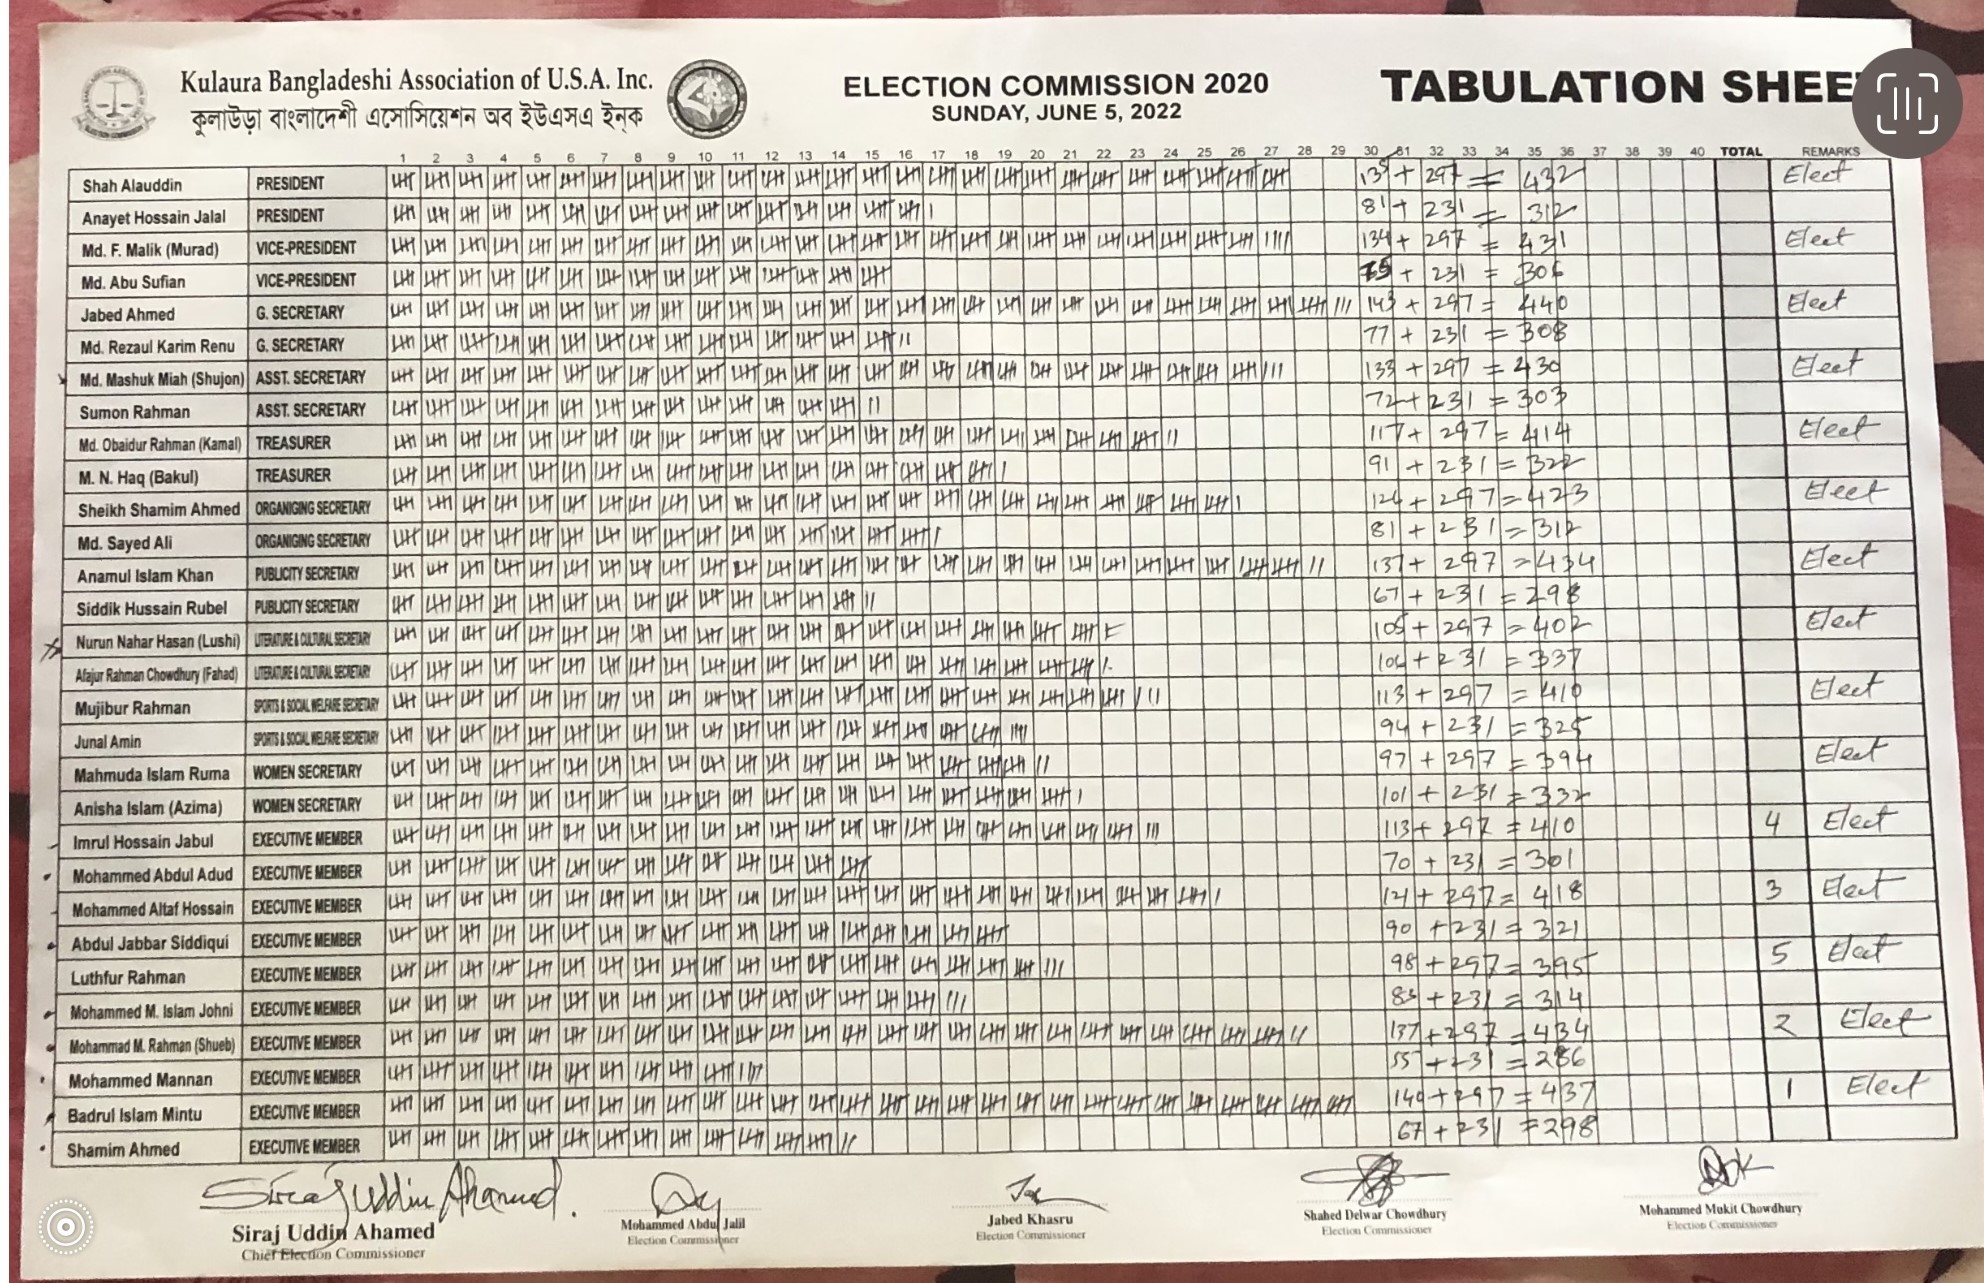 Kulaura Bangladeshi Association of U.S.A. Inc.
কুলাউড়া বাংলাদেশী এসোসিয়েশন অব ইউএসএ ইন্‌ক
ELECTION COMMISSION 2020
SUNDAY, JUNE 5, 2022
TABULATION SHEE
1 2 3 4 5 6 7 8 9 10 11 12 13 14 15 16 17 18 19 20 21 22 23 24 25 26 27 28 29 30 31 32 33 34 35 36 37 38 39 40 TOTAL REMARKS
Shah Alauddin PRESIDENT 135 + 297 = 432 Elect
Anayet Hossain Jalal PRESIDENT 81 + 231 = 312
Md. F. Malik (Murad) VICE-PRESIDENT 134 + 297 = 431 Elect
Md. Abu Sufian VICE-PRESIDENT 75 + 231 = 306
Jabed Ahmed G. SECRETARY 143 + 297 = 440 Elect
Md. Rezaul Karim Renu G. SECRETARY 77 + 231 = 308
Md. Mashuk Miah (Shujon) ASST. SECRETARY 133 + 297 = 430 Elect
Sumon Rahman ASST. SECRETARY 72 + 231 = 303
Md. Obaidur Rahman (Kamal) TREASURER 117 + 297 = 414 Elect
M. N. Haq (Bakul) TREASURER 91 + 231 = 322
Sheikh Shamim Ahmed ORGANIGING SECRETARY 126 + 297 = 423 Elect
Md. Sayed Ali ORGANIGING SECRETARY 81 + 231 = 312
Anamul Islam Khan PUBLICITY SECRETARY 137 + 297 = 434 Elect
Siddik Hussain Rubel PUBLICITY SECRETARY 67 + 231 = 298
Nurun Nahar Hasan (Lushi) LITERATURE & CULTURAL SECRETARY 105 + 297 = 402 Elect
Afajur Rahman Chowdhury (Fahad) LITERATURE & CULTURAL SECRETARY 106 + 231 = 337
Mujibur Rahman SPORTS & SOCIAL WELFARE SECRETARY 113 + 297 = 410 Elect
Junal Amin SPORTS & SOCIAL WELFARE SECRETARY 94 + 231 = 325
Mahmuda Islam Ruma WOMEN SECRETARY 97 + 297 = 394 Elect
Anisha Islam (Azima) WOMEN SECRETARY 101 + 231 = 332
Imrul Hossain Jabul EXECUTIVE MEMBER 113 + 297 = 410 4 Elect
Mohammed Abdul Adud EXECUTIVE MEMBER 70 + 231 = 301
Mohammed Altaf Hossain EXECUTIVE MEMBER 121 + 297 = 418 3 Elect
Abdul Jabbar Siddiqui EXECUTIVE MEMBER 90 + 231 = 321
Luthfur Rahman EXECUTIVE MEMBER 98 + 297 = 395 5 Elect
Mohammed M. Islam Johni EXECUTIVE MEMBER 83 + 231 = 314
Mohammad M. Rahman (Shueb) EXECUTIVE MEMBER 137 + 297 = 434 2 Elect
Mohammed Mannan EXECUTIVE MEMBER 55 + 231 = 286
Badrul Islam Mintu EXECUTIVE MEMBER 140 + 297 = 437 1 Elect
Shamim Ahmed EXECUTIVE MEMBER 67 + 231 = 298
Siraj Uddin Ahamed.
Siraj Uddin Ahamed
Chief Election Commissioner
Mohammed Abdul Jalil
Election Commissioner
Jabed Khasru
Election Commissioner
Shahed Delwar Chowdhury
Election Commissioner
Mohammed Mukit Chowdhury
Election Commissioner